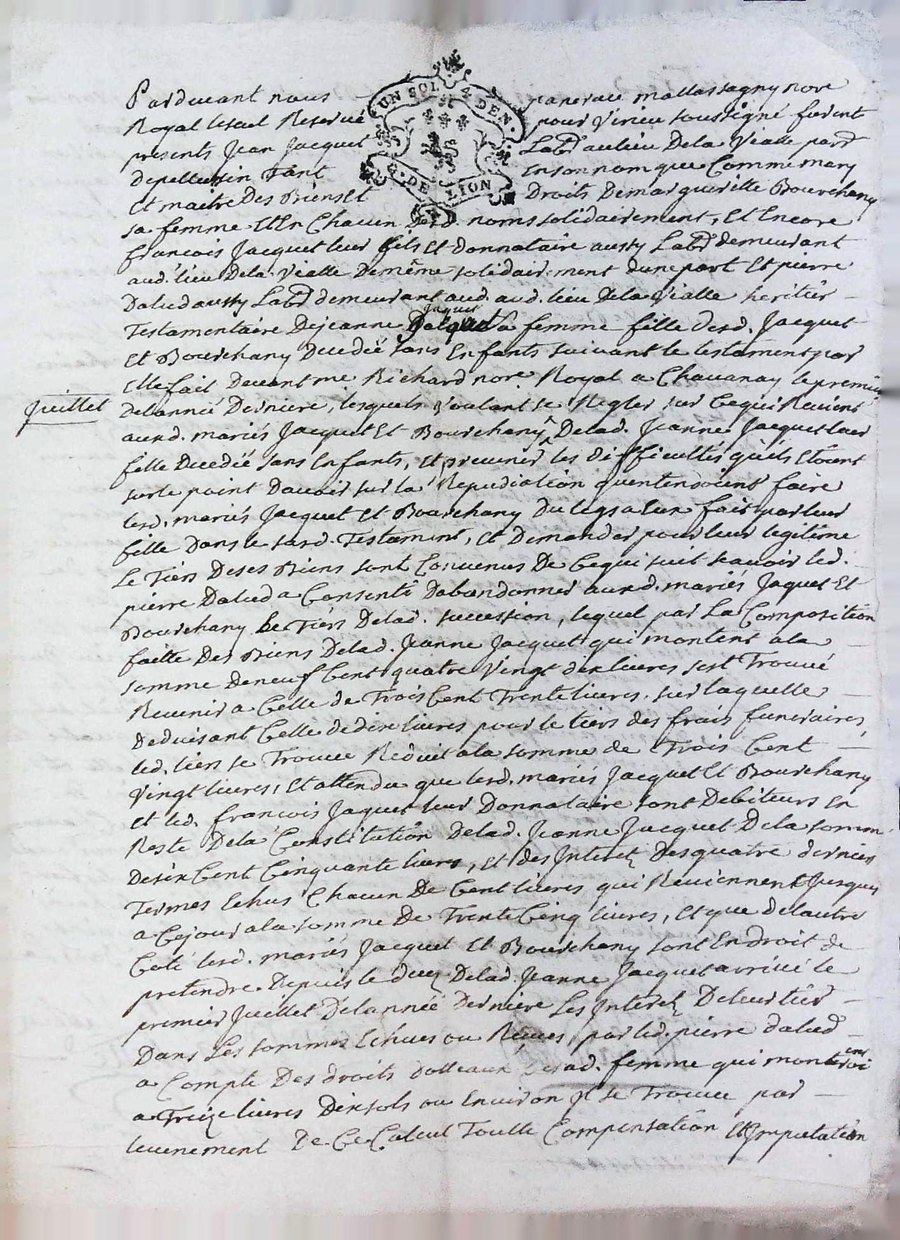 Pardevant nous
UN SOL 4 DEN.
G. DE LION
mallassagny nore
Royal Reservé
pour Virieu soussigné furent
presents Jean Jacquet
Labr au lieu Dela Vialle parr
Depellussin Tant
En son nom que Comme mary
Et maitre Des Biens Et
Droits De margueritte Bourchany
sa femme Et En Chacun Desd. noms solidairement, Et Encore
francois Jacquet leur fils Et Donnataire aussy Labr demeurant
aud. lieu Dela Vialle De même solidairement dune part Et pierre
Dalud aussy Labr demeurant aud. aud. lieu Dela Vialle heritier
Testamentaire De jeanne Jaquet sa femme fille desd. Jacquet
Et Bourchany Decedée sans Enfants suivant le testament par
Elle fait Devant me Richard nore Royal a Chavanay le premier
juillet
Delannée Derniere, lesquels Voulant se Regler sur Cequi Revient
auxd. mariés Jacquet Et Bourchany Delad. Jeanne Jacquet leur
fille Decedée sans Enfants, Et prevenir les Difficultés quils Etoient
sur le point Davoir sur la Repudiation quentendoient faire
lesd. mariés Jacquet Et Bourchany Du legs a Eux fait par leur
fille Dans le susd. Testament, Et Demander pour leur legitime
Le Tiers De ses Biens sont Convenus De Cequi suit scavoir led.
pierre Dalud a Consenti Dabandonner auxd. mariés Jaquet Et
Bourchany Le Tiers Delad. succession, lequel par La Composition
faitte Des Biens Delad. Jeanne Jacquet qui montent a la
somme De neuf Cent quatre Vingt dix livres sest Trouvé
Revenir a Celle de Trois Cent Trente livres, sur laquelle
Deduisant Celle de dix livres pour le tiers des frais funeraires,
led. tiers se Trouve Reduit ala somme de Trois Cent
Vingt livres, Et attendu que lesd. mariés Jacquet Et Bourchany
Et led. francois Jaquet leur Donnataire sont Debiteurs En
Reste Dela Constitution Delad. Jeanne Jacquet Dela somme
De six Cent Cinquante livres, Et des Interets Des quatre derniers
Termes Echus Chacun De Cent livres qui Reviennent Jusques
a Cejour ala somme De Trente Cinq livres, Et que Delautre
Coté lesd. mariés Jacquet Et Bourchany sont En droit de
pretendre Depuis le decez Delad. Jeanne Jacquet arrivé le
premier Juillet Delannée Derniere Les Interets De leur tiers
Dans Les sommes Echues ou Reçues par led. pierre dalud
a Compte Des droits dotteaux Desad. femme qui monteroient
a Treize livres Dix sols ou Environ Il se Trouve par
levenement De Ce Calcul Toutte Compensation Et Imputation